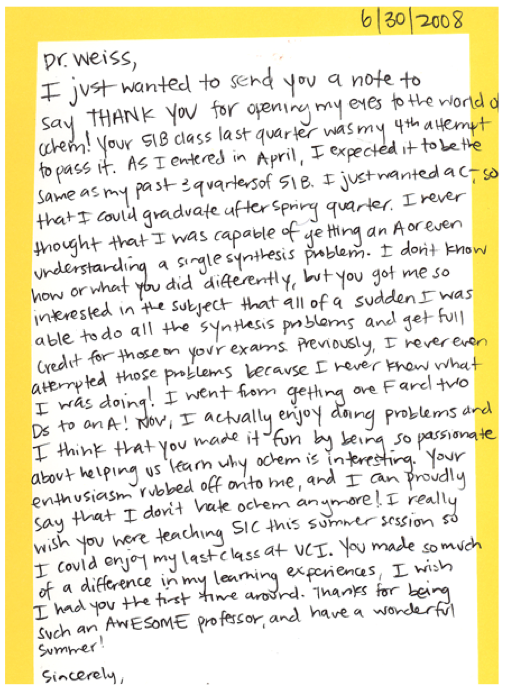 6/30/2008
Dr. Weiss,
I just wanted to send you a note to
say THANK YOU for opening my eyes to the world of
ochem! Your 51B class last quarter was my 4th attempt
to pass it. As I entered in April, I expected it to be the
same as my past 3 quarters of 51B. I just wanted a C-, so
that I could graduate after spring quarter. I never
thought that I was capable of getting an A or even
understanding a single synthesis problem. I don't know
how or what you did differently, but you got me so
interested in the subject that all of a sudden I was
able to do all the synthesis problems and get full
credit for those on your exams. Previously, I never even
attempted those problems because I never knew what
I was doing! I went from getting one F and two
Ds to an A! Now, I actually enjoy doing problems and
I think that you made it fun by being so passionate
about helping us learn why ochem is interesting. Your
enthusiasm rubbed off onto me, and I can proudly
say that I don't hate ochem anymore! I really
wish you were teaching 51C this summer session so
I could enjoy my last class at UCI. You made so much
of a difference in my learning experiences, I wish
I had you the first time around. Thanks for being
such an AWESOME professor, and have a wonderful
summer!
Sincerely,